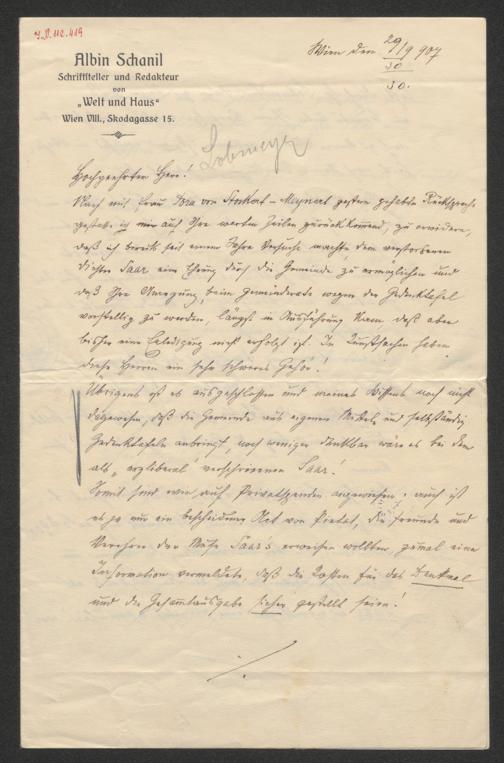 I.N. 112.419
Albin Schanil
Schriftsteller und Redakteur
von
„Welt und Haus“
Wien VIII., Skodagasse 15.
Wien den 29/9 907
30
30.
Lobmeyr
Hochgeehrter Herr!
Nach mit Frau Ida von - Maynart gestern gehabter Rücksprache
gestatte ich mir auf Ihre werten Zeilen zurückkommend, zu erwidern,
daß ich bereits seit einem Jahre Versuche machte, dem verstorbenen
Dichter Saar eine Ehrung durch die Gemeinde zu ermöglichen und
daß Ihre Anregung, beim Gemeinderate wegen der Gedenktafel
vorstellig zu werden, längst in Ausführung kam, daß aber
bisher eine Erledigung nicht erfolgt ist. In Kunstsachen haben
diese Herren ein sehr schweres Gehör!
Übrigens ist es ausgeschlossen und meines Wissens noch nicht
dagewesen, daß die Gemeinde aus eigenen Mitteln und selbständig
Gedenktafeln anbringt, noch weniger denkbar wäre es bei dem
als „erzliberal verschrieenen Saar!
Somit sind wir auf Privatspenden angewiesen; auch ist
es ja nur ein bescheidener Akt von Pietät, den Freunde und
Verehrer der Muse Saar's erweisen wollten, zumal eine
Information vermeldete, daß die Kosten für das Denkmal
und die Gesammtausgabe sicher gestellt seien!
./.